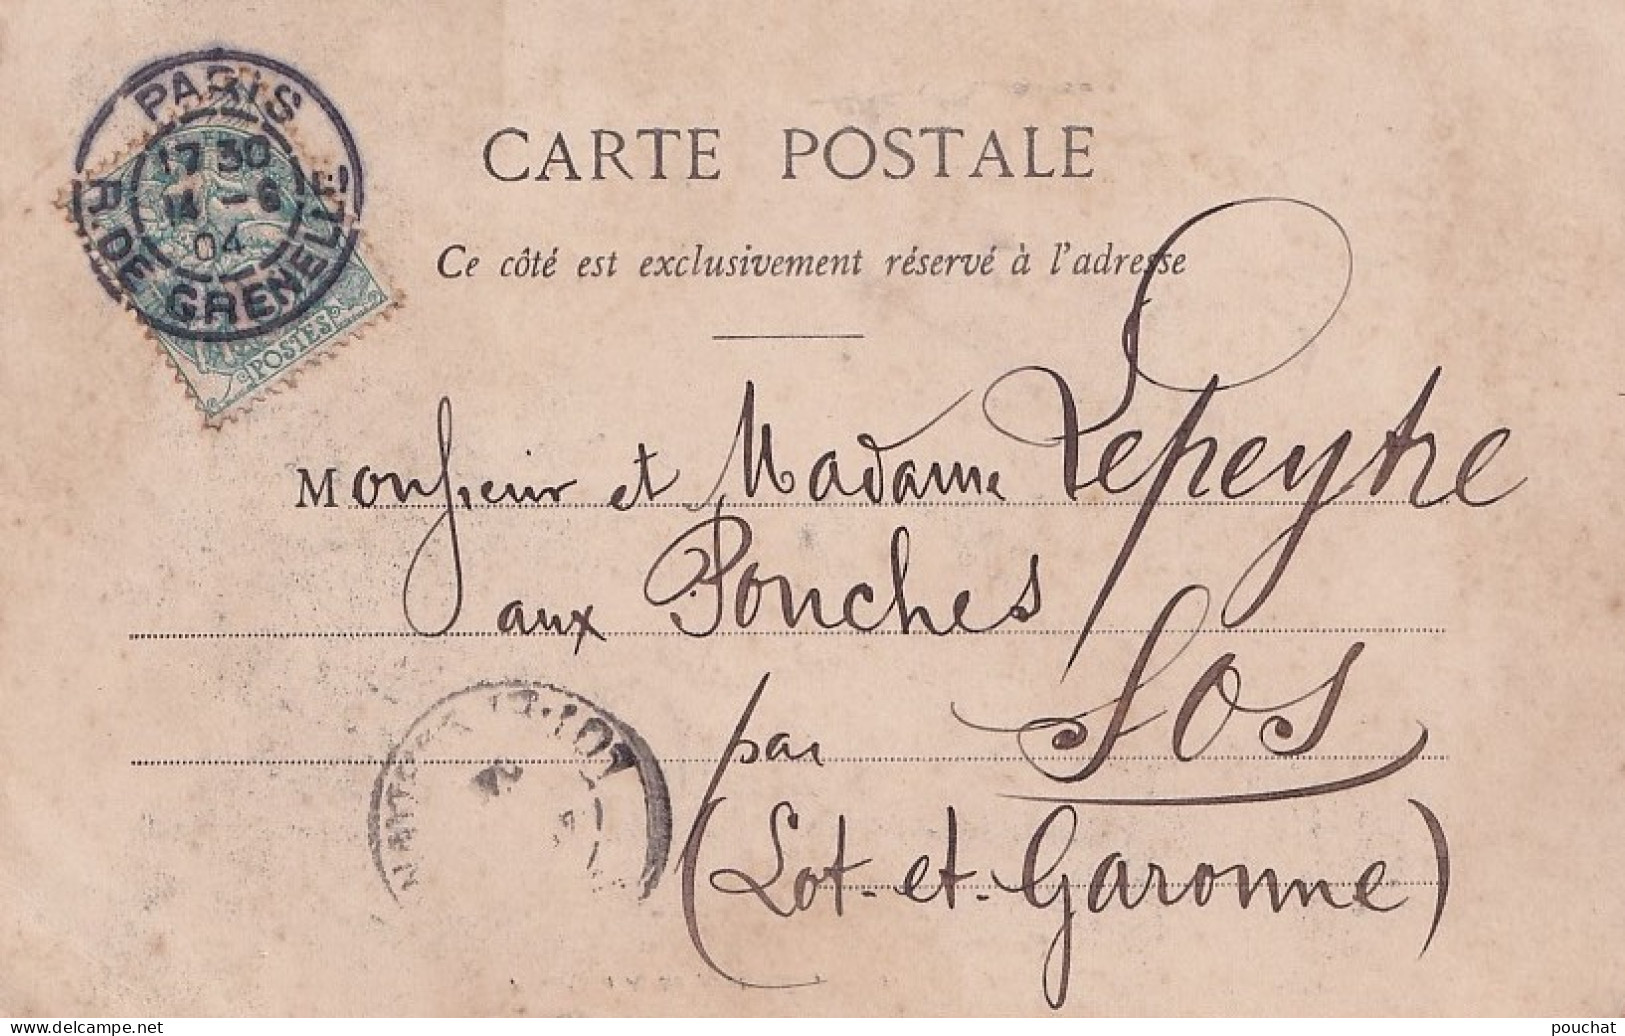 PARIS
17 30
14 - 6
04
R. DE GRENELLE
POSTES
CARTE POSTALE
Ce côté est exclusivement réservé à l'adresse
Monsieur et Madame Lepeytre
aux Ponches
par SOS
(Lot-et-Garonne)
LOT-ET-GARONNE
delcampe.net
pouchat